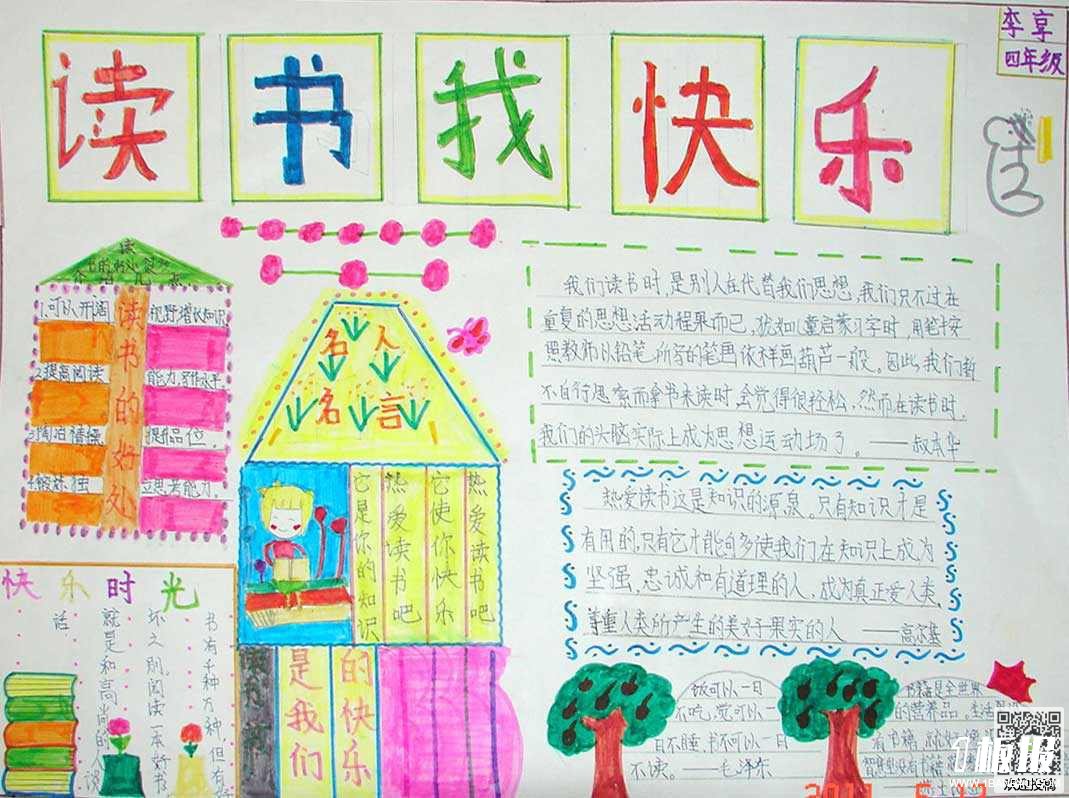 李享
四年级
读书我快乐
读
1.可以开阔 视野增长知识
2.提高阅读 能力,写作水平
3.陶冶情操 提品位。
4.锻炼独 立思考能力。
读书的好处
名人
名言
热爱读书吧
它使你快乐
热爱读书吧
它是你的知识
的快乐
是我们
我们读书时,是别人在代替我们思想,我们只不过在
重复的思想活动程果而已,犹如儿童启蒙习字时,用笔按
照教师以铅笔所写的笔画依样画葫芦一般。因此,我们暂
不自行思索而拿书来读时,会觉得很轻松,然而在读书时,
我们的头脑实际上成为思想运动场了。——叔本华
热爱读书这是知识的源泉。只有知识才是
有用的,只有它才能多使我们在知识上成为
坚强,忠诚和有道理的人,成为真正爱人类、
尊重人类所产生的美好果实的人——高尔基
快乐时光
书有千种万种但有
坏之别,阅读一本好书
就是和高尚的人说
话
饭可以一日
不吃,觉可以一
日不睡,书不可以一日
不读。——毛泽东
书籍是全世界
的营养品。生活里没
有书籍,就好
板报
欢迎投稿